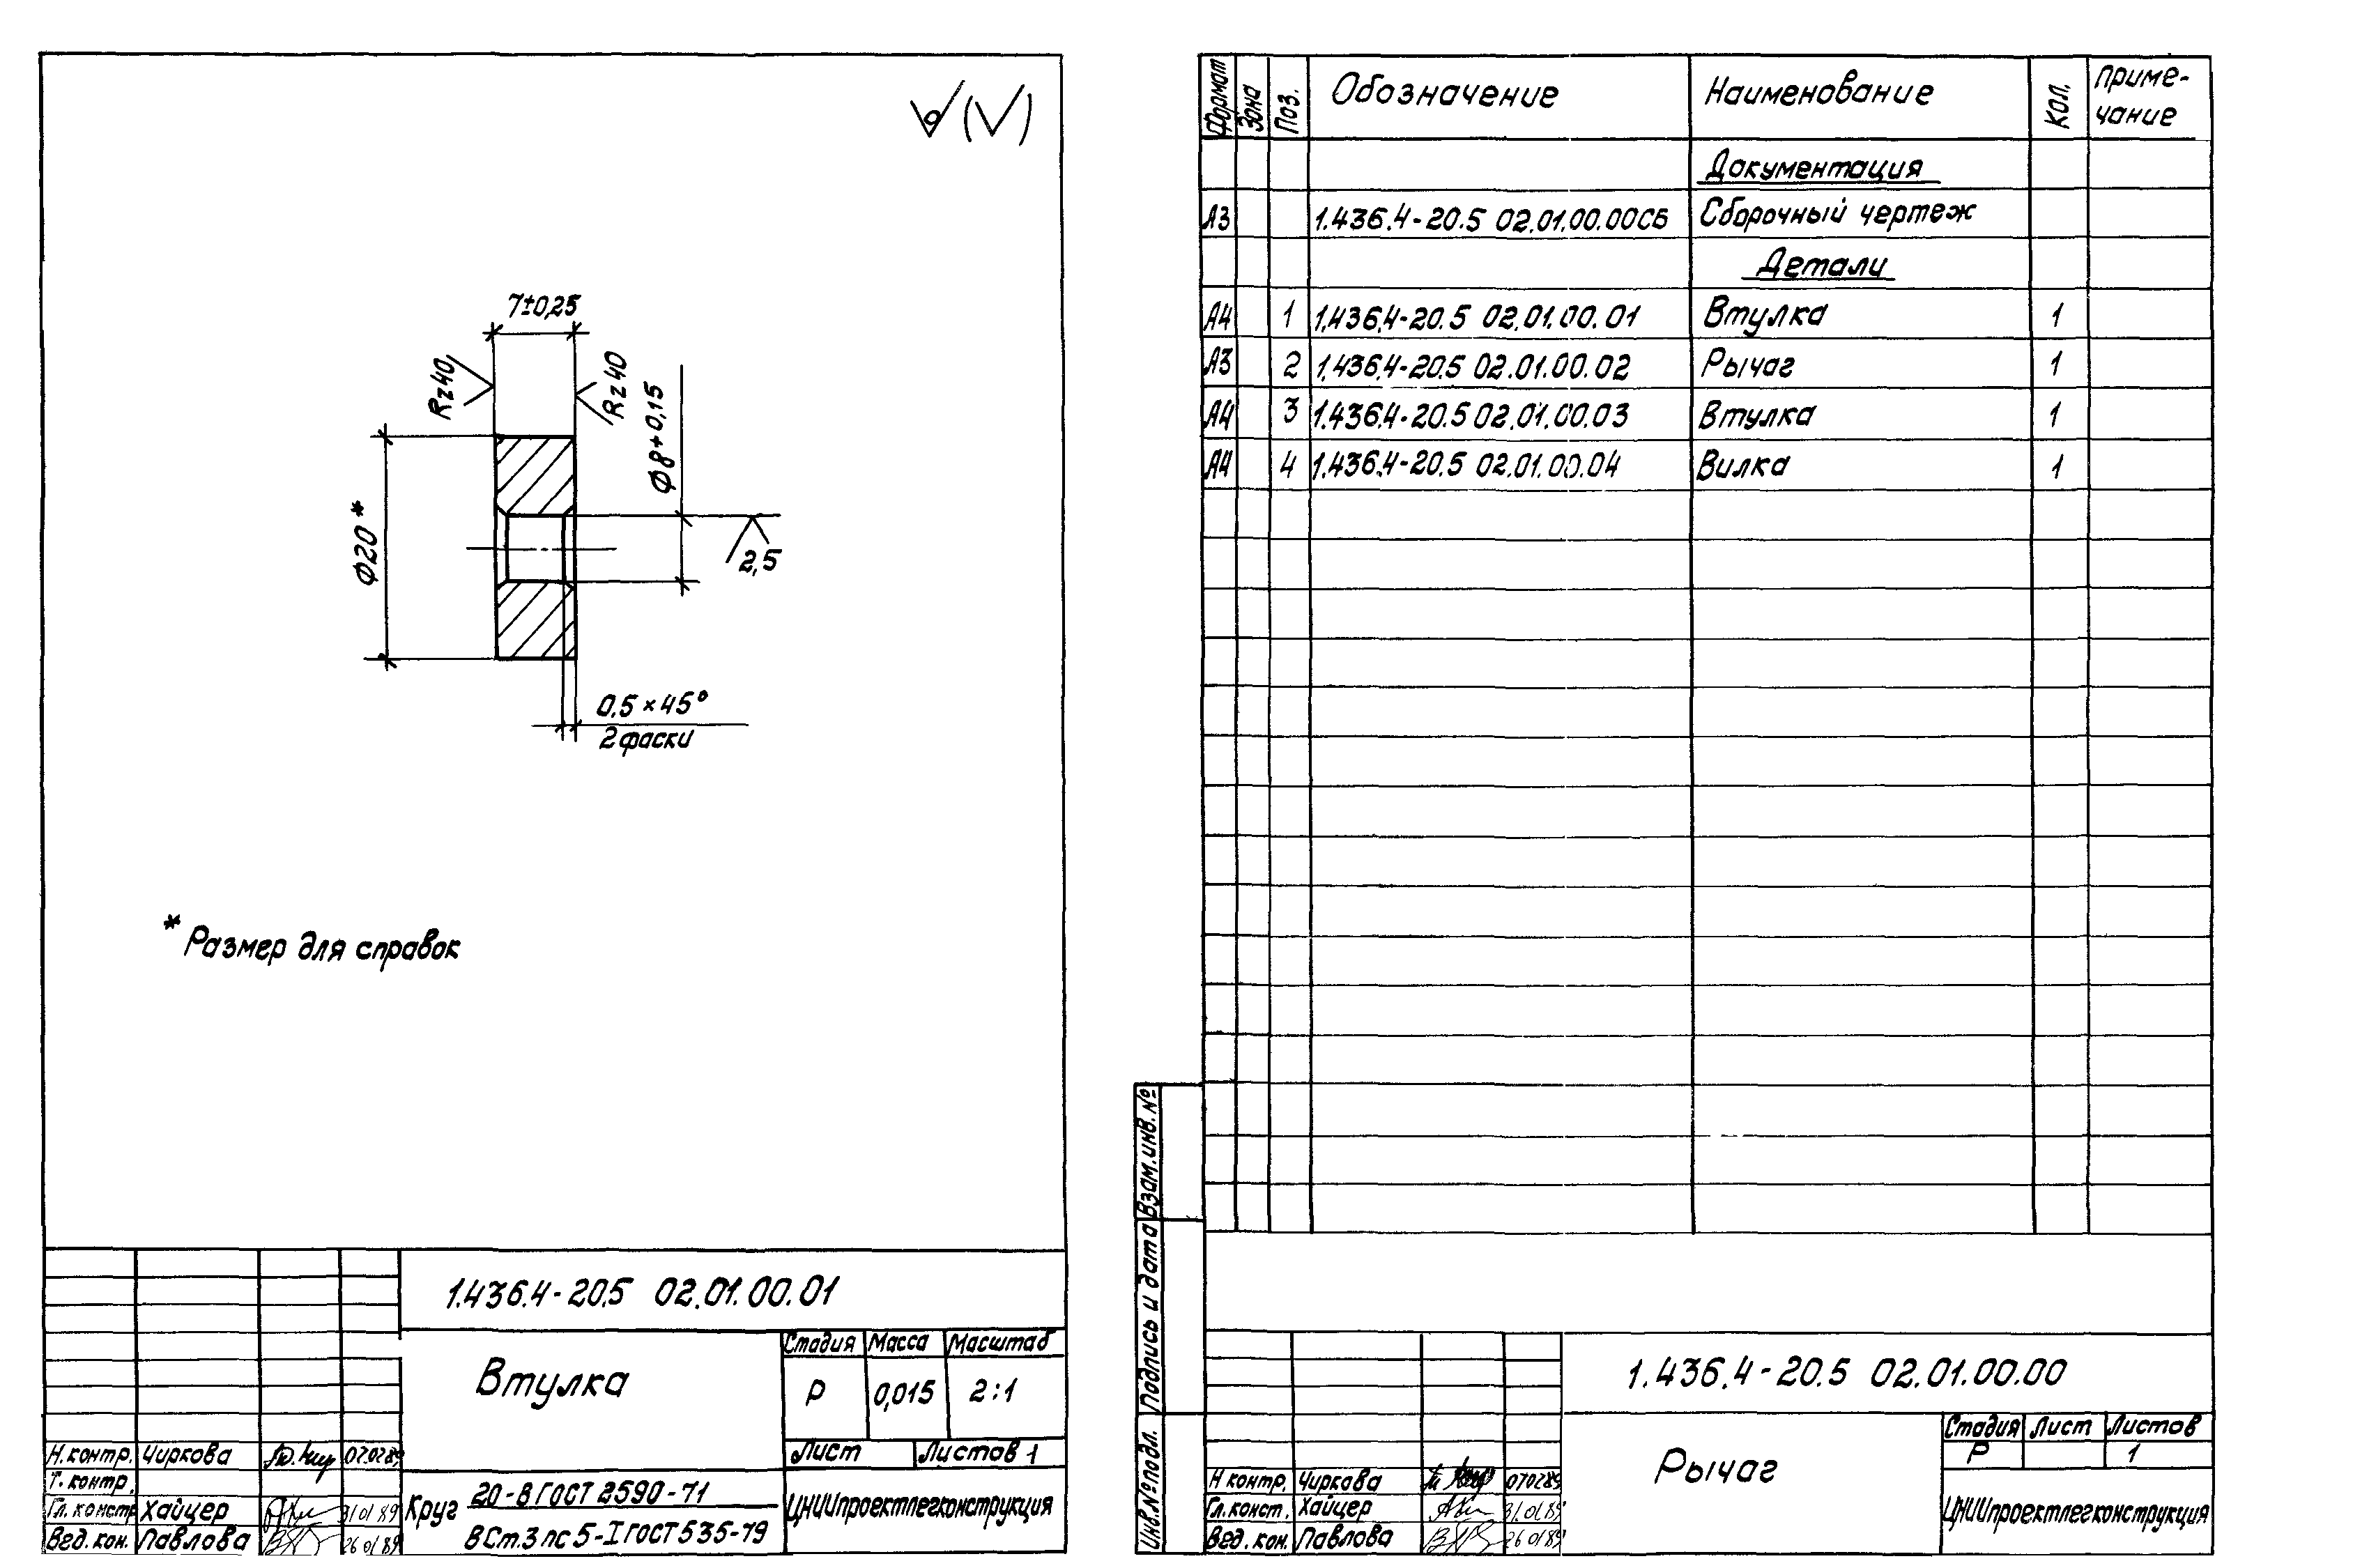 7±0,25
Rz40
Rz40
Ф8+0,15
Ф20*
2,5
0,5×45°
2 фаски
* Размер для справок
1.436.4-20.5 02.01.00.01
Втулка
Стадия Масса Масштаб
Р 0,015 2:1
Лист Листов 1
Н.контр. Чиркова 07.02.89
Т. контр.
Гл. констр. Хайцер 31 01 89
Вед. кон. Павлова 26 01 89
Круг 20-В ГОСТ 2590-71
ВСт.3пс5-I ГОСТ 535-79
ЦНИИпроектлегконструкция
Формат Зона Поз. Обозначение Наименование Кол. Приме-
чание
Документация
А3 1.436.4-20.5 02.01.00.00СБ Сборочный чертеж
Детали
А4 1 1.436.4-20.5 02.01.00.01 Втулка 1
А3 2 1.436.4-20.5 02.01.00.02 Рычаг 1
А4 3 1.436.4-20.5 02.01.00.03 Втулка 1
А4 4 1.436.4-20.5 02.01.00.04 Вилка 1
Взам.инв.№
Подпись и дата
Инв.№подл.
1.436.4-20.5 02.01.00.00
Рычаг
Стадия Лист Листов
Р 1
Н контр. Чиркова 07 02 89
Гл.конст. Хайцер 31 01 89
Вед. кон. Павлова 26 01 89
ЦНИИпроектлегконструкция